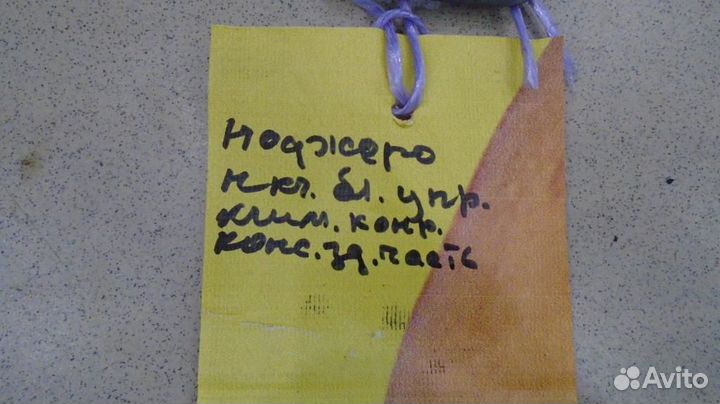 Паджеро
нкл. бл. упр.
клим. конр.
конс. зд. часть
Avito